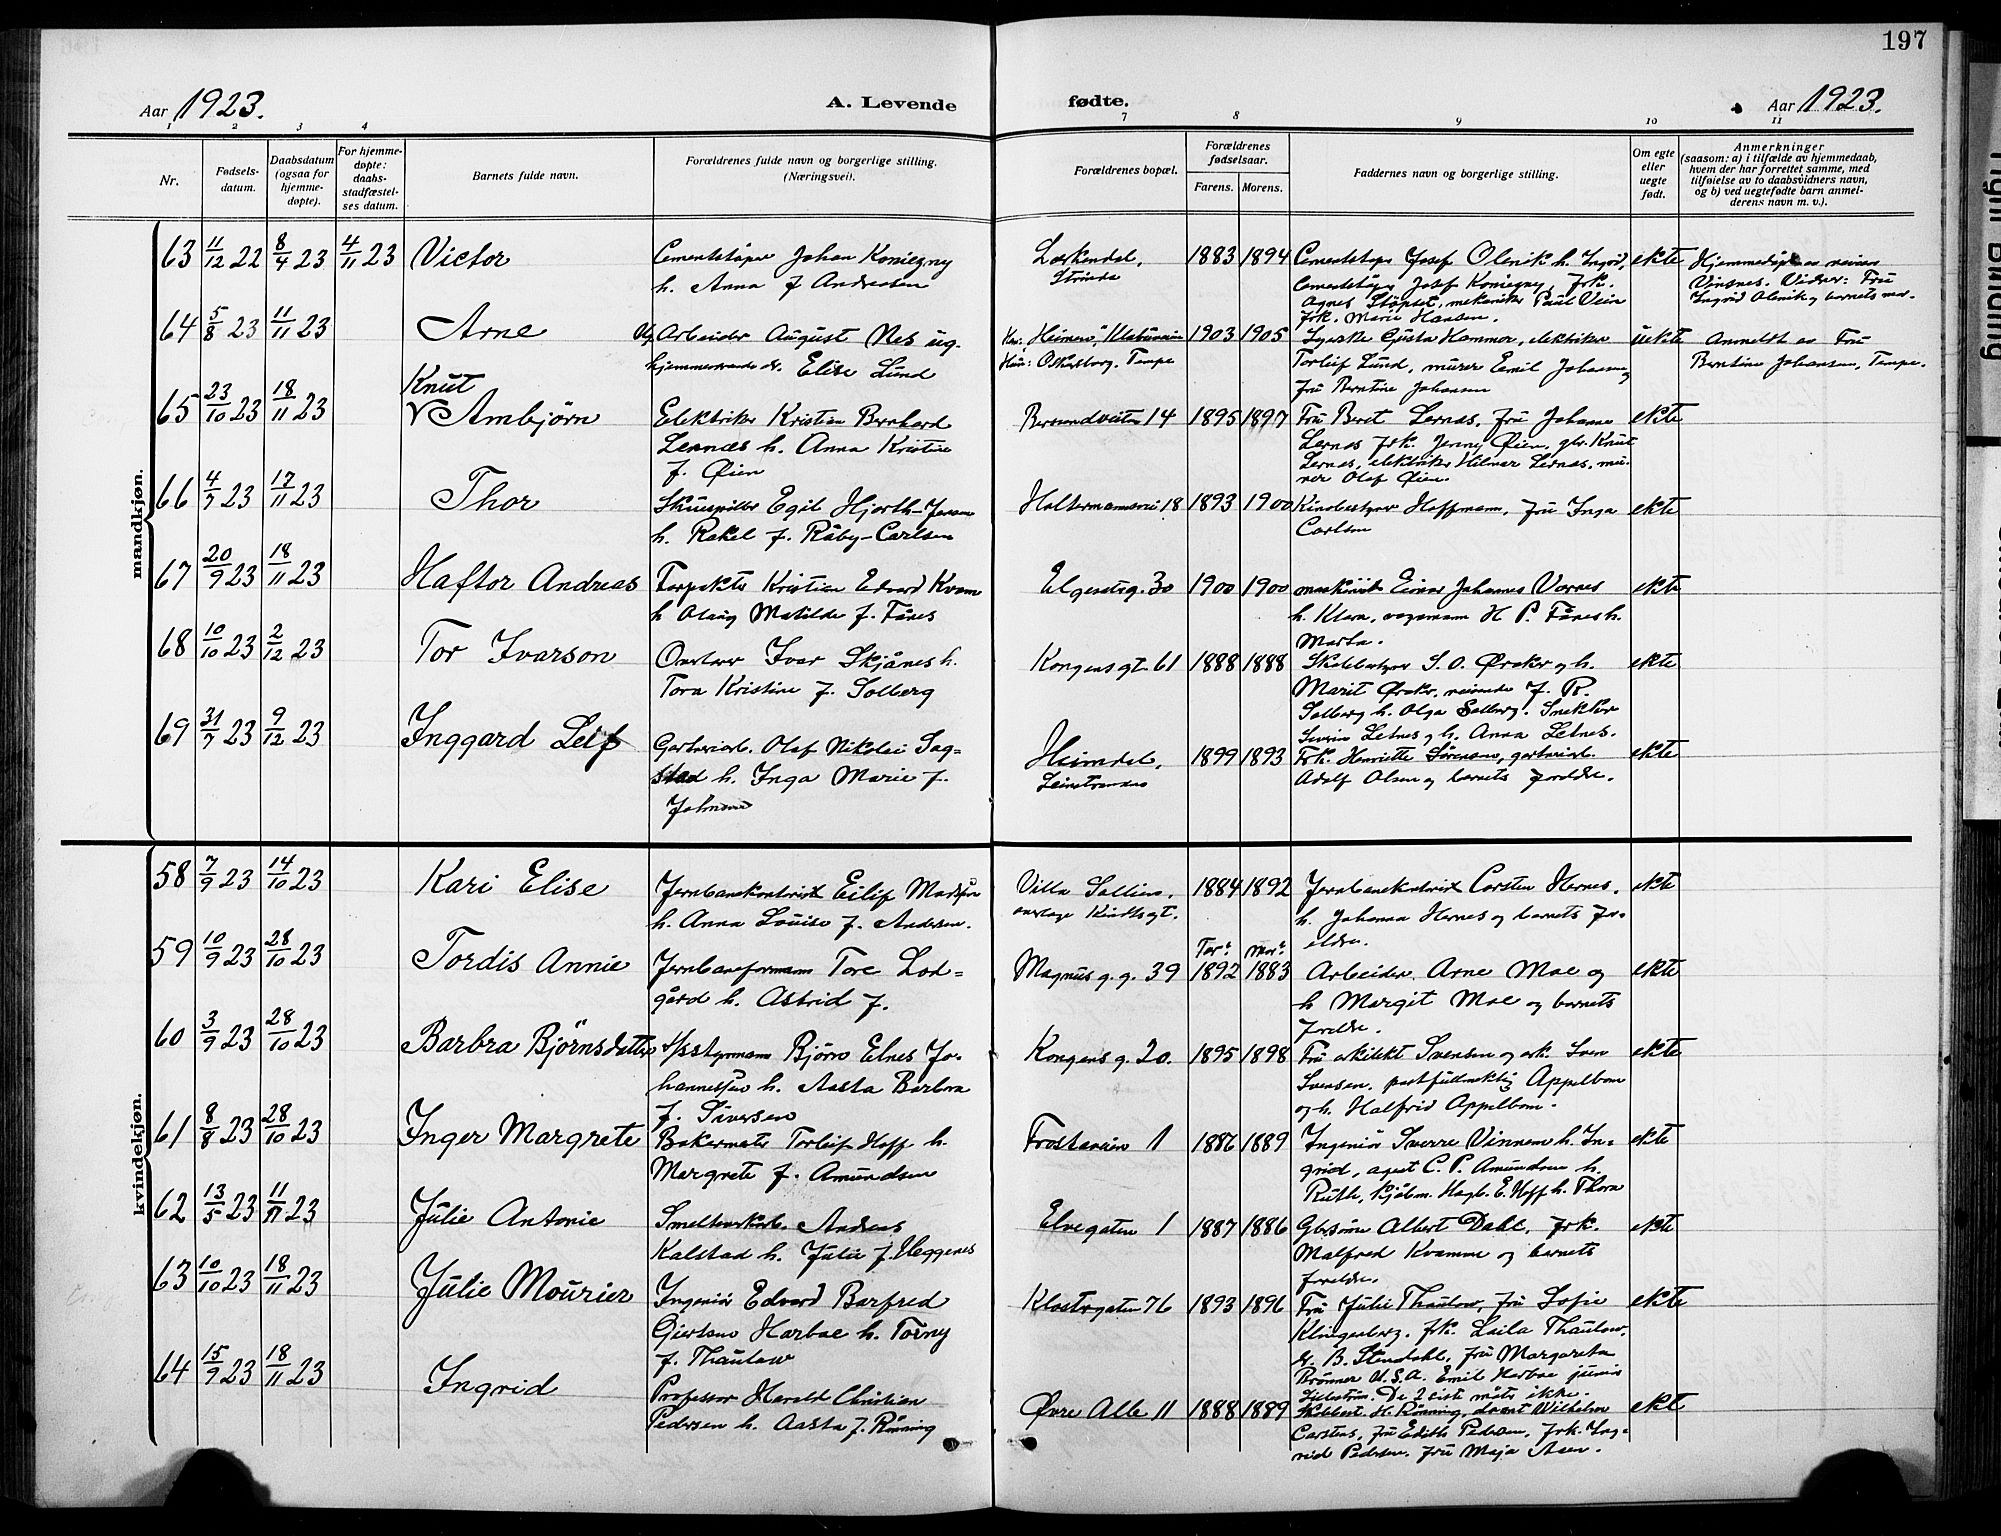 197
Aar 1923.
A. Levende fødte.
Aar 1923.
1 2 3 4 7 8 9 10 11
Nr.
Fødsels-
datum.
Daabsdatum
(ogsaa for
hjemme-
døpte).
For hjemme-
døpte:
daabs-
stadfæstel-
ses datum.
Barnets fulde navn.
Forældrenes fulde navn og borgerlige stilling.
(Næringsvei).
Forældrenes bopæl.
Forældrenes
fødselsaar.
Farens. Morens.
Faddernes navn og borgerlige stilling.
Om egte
eller
uegte
født.
Anmerkninger
(saasom: a) i tilfælde av hjemmedaab,
hvem der har forrettet samme, med
tilføielse av to daabsvidners navn,
og b) ved uegtefødte barn anmel-
derens navn m. v.).
mandkjøn.
63 11/12 22 8/4 23 4/11 23 Victor
Cementstøper Johan Koniegny
h. Anna f Andreasen
1883 1894
Josef Olenik h. Ingrid,
Josef Koniegny, frk.
Agnes Støpset, mekaniker Paul Vein
frk. Marie Hansen.
ekte
Vinsnes. Vidner: Fru
Ingrid Olenik og barnets mor.
64 5/8 23 11/11 23 Arne
Arbeider August Nes ug.
Elise Lund
Han: Heimen, Klæbuveien
Hun: Oskarsborg. Tempe
1903 1905
Gusta Hammer, elektriker
Torleif Lund, murer Emil Johansen og
fru Berntine Johansen
uekte
Anmeldt av Fru
Berntine Johansen, Tempe.
65 23/10 23 18/11 23 Knut
V Ambjørn
Elektriker Kristian Bernhard
Lernæs h. Anna Kristine
f. Øien
14 1895 1897
Fru Beret Lernæs, fru Johanne
Lernæs frk. Jenny Øien, Knut
Lernæs, elektriker Hilmar Lernæs, mu-
rer Olaf Øien.
ekte
66 4/7 23 17/11 23 Thor
Skuespiller Egil Hjorth-Jensen
h. Rakel f. Råby-Carlsen
18 1893 1900
Kinobestyrer Hoffmann, fru Inga
Carlson
ekte
67 20/9 23 18/11 23 Haftor Andreas
Kristian Edvard Kvam
h Olaug Matilde f. Fånes
Elgesetsg. 30 1900 1900
Einar Johannes Vornes
h. Klara, vognmann H P. Fånes h.
Marta.
ekte
68 10/10 23 2/12 23 Tor Ivarson
Overlærer Ivar Skjånes h.
Tora Kristine f. Solberg
Kongens gt. 61 1888 1888
Skolebestyrer S. O. Øraker og h.
Marit Øraker, reisende J. R.
Solberg h. Olga Solberg. Snekker
Severin Letnes og h. Anna Letnes.
ekte
69 31/7 23 9/12 23 Inggard Leif
Gartneriarb. Olaf Nikolai Sag-
stad h. Inga Marie f.
Johnsen
Heimdal,
Leinstranden
1899 1893
Frk. Henriette Sørensen, gartneriarb.
Adolf Olsen og barnets foreldre.
ekte
kvindekjøn.
58 7/9 23 14/10 23 Kari Elise
Jernbanekontorist Eilif Madsen
h. Anna Louise f. Andersen.
Villa Solliens,
1884 1892
Jernbanekontorist Carsten Hernes,
h. Johanna Hernes og barnets for-
eldre.
ekte
59 10/9 23 28/10 23 Tordis Annie
Jernbaneformann Tore Lod-
gård h. Astrid f.
Magnus g. g. 39
Far: Mor:
1892 1883
Arbeider Arne Moe og
h Margit Moe og barnets
foreldre.
ekte
60 3/9 23 28/10 23 Barbra Bjørnsdatter
Bjørn Elnes Jo-
hannessen h. Aasta Barbra
f. Siversen
Kongens g. 20. 1895 1898
Fru arkitekt Svensen og ark. Sven
Svensen, postfullmektig Appelbom
og h. Halfrid Appelbom.
ekte
61 8/8 23 28/10 23 Inger Margrete
Bakermester Torleif Hoff h.
Margrete f. Amundsen
Frostaveien 1 1886 1889
Ingeniør Sverre Vinnem h. In-
grid, agent C. P. Amundsen h.
Ruth, kjøbm. Hagb. E. Hoff h. Thora
ekte
62 13/5 23 11/11 23 Julie Antonie
Smelteverksarb. Andreas
Kalstad h. Julie f. Heggenes
Elvegaten 1 1887 1886
Albert Dahl, frk.
Malfred Kvamme og barnets
foreldre.
ekte
63 10/10 23 18/11 23 Julie Mourier
Ingeniør Edvard Barfred
Giertsen Harboe h. Torny
f. Thaulow
Klostergaten 76 1893 1896
Fru Julie Thaulow, fru Sofie
Klingenberg, frk. Laila Thaulow,
B. Stendahl, fru Margareta
Brønner U.S.A. Emil Harboe junior
De 2 siste møtte ikke.
ekte
64 15/9 23 18/11 23 Ingrid
Professor Harald Christian
Pedersen h. Aasta f. Rønning
Øvre Alle 11 1888 1889
Skolebest. H. Rønning, dosent Wilhelm
Carstens, fru Edith Pedersen, frk. Ing-
rid Pedersen, fru Maja Asen.
ekte